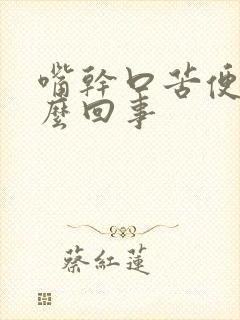 嘴幹口苦便
麼回事
蔡紅蓮